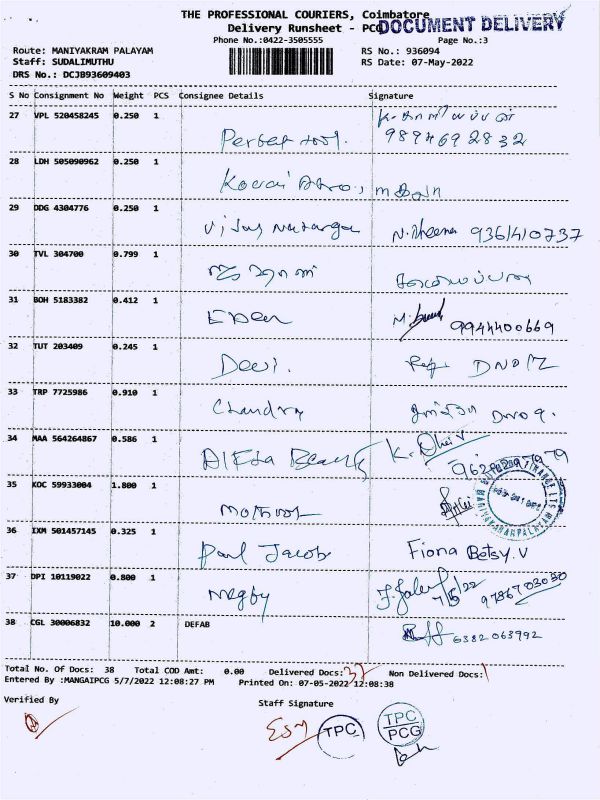 THE PROFESSIONAL COURIERS, Coimbatore
Delivery Runsheet - PCG
DOCUMENT DELIVERY
Phone No.:0422-3505555
Page No.:3
Route: MANIYAKRAM PALAYAM
RS No.: 936094
Staff: SUDALIMUTHU
RS Date: 07-May-2022
DRS No.: DCJB93609403
S No Consignment No Weight PCS Consignee Details Signature
27 VPL 520458245 0.250 1
98946 92832
28 LDH 505090962 0.250 1
Kovai
29 DDG 4304776 0.250 1
Vijay N. Meena 9361410737
30 TVL 304700 0.799 1
31 BOH 5183382 0.412 1
Eden M. 9944400669
32 TUT 203409 0.245 1
Devi. DNO 12
33 TRP 7725986 0.910 1
Chandra DNO 9.
34 MAA 564264867 0.586 1
K.
35 KOC 59933004 1.800 1
36 IXM 501457145 0.325 1
Paul Jacob Fiona Betsy. V
37 DPI 10119022 0.800 1
Megby 7/5/22 9786703030
38 CGL 30006832 10.000 2 DEFAB
6382 063992
Total No. Of Docs: 38 Total COD Amt: 0.00 Delivered Docs: 37 Non Delivered Docs: 1
Entered By :MANGAIPCG 5/7/2022 12:08:27 PM Printed On: 07-05-2022 12:08:38
Verified By
Staff Signature
TPC
TPC
PCG